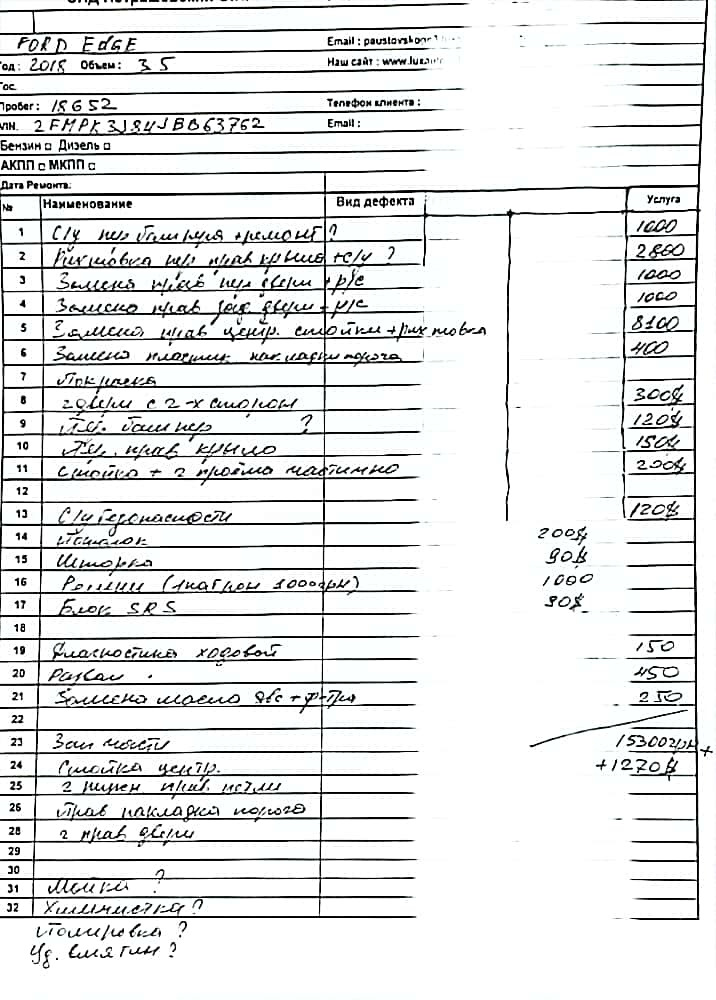 FORD EDGE
Email : paustovskogo
Год: 2018 Объем: 3.5
Наш сайт : www.lux
Гос.
Пробег: 18652
Телефон клиента :
2FMPK3J84JBB63762
Email :
Бензин □ Дизель □
АКПП □ МКПП □
Дата Ремонта:
№ Наименование Вид дефекта Услуга
1 С/у пер бампера + ремонт ? 1000
2 Рихтовка пер прав крыла + с/у ? 2800
3 Замена прав пер двери + р/с 1000
4 Замена прав зад двери + р/с 1000
5 Замена прав центр. стойки + рихтовка 8100
6 Замена пластик накладки порога 400
7 Покраска
8 2 двери с 2-х сторон 300$
9 бампер ? 120$
10 прав крыло 150$
11 Стойка + 2 проёма частично 200$
12
13 С/у безопасности 120$
14 Потолок 200$
15 Шторка 90$
16 Ремни (1 патрон 1000грн) 1000
17 Блок SRS 90$
18
19 Диагностика ходовой 150
20 Развал 450
21 Замена масла двс + ф-тра 250
22
23 Зап части 15300грн +
24 Стойка центр. +1270$
25 2 прав. петли
26 Прав накладка порога
28 2 прав двери
29
30
31 Мойка ?
32 Химчистка ?
Полировка ?
Уд. вмятин ?